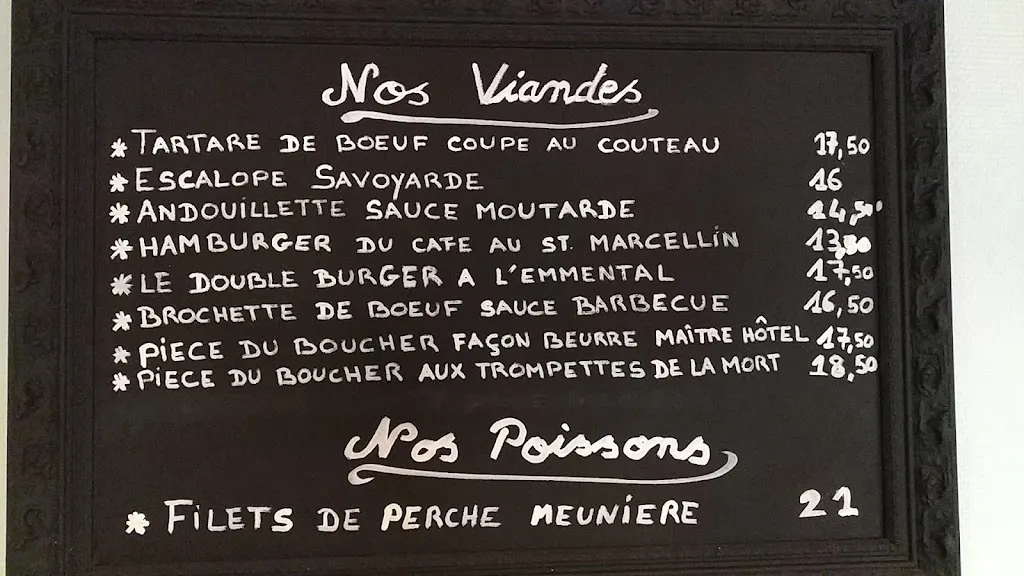 Nos Viandes
* TARTARE DE BOEUF COUPE AU COUTEAU 17,50
* ESCALOPE SAVOYARDE 16
* ANDOUILLETTE SAUCE MOUTARDE 14,50
* HAMBURGER DU CAFE AU ST. MARCELLIN
* LE DOUBLE BURGER A L'EMMENTAL 17,50
* BROCHETTE DE BOEUF SAUCE BARBECUE 16,50
* PIECE DU BOUCHER FAÇON BEURRE MAÎTRE HÔTEL 17,50
* PIECE DU BOUCHER AUX TROMPETTES DE LA MORT 18,50
Nos Poissons
* FILETS DE PERCHE MEUNIERE 21